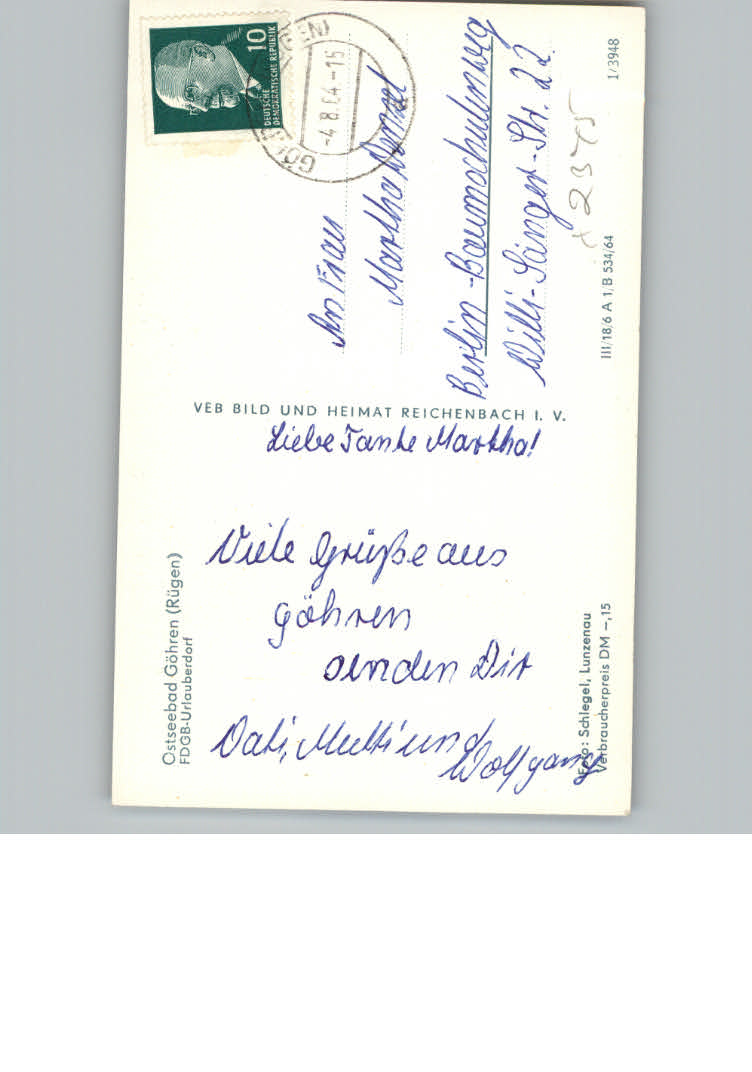 DEUTSCHE
DEMOKRATISCHE REPUBLIK
10
-4.8.64-15
An Frau
Martha
Berlin-Baumschulenweg
Willi-Sänger-Str. 22
2375
1/3948
III/18/6 A 1/B 534/64
VEB BILD UND HEIMAT REICHENBACH I. V.
Liebe Tante Martha!
Viele Grüße aus
Göhren
senden Dir
Vati, Mutti und
Wolfgang
Ostseebad Göhren (Rügen)
FDGB-Urlauberdorf
Foto: Schlegel, Lunzenau
Verbraucherpreis DM -,15